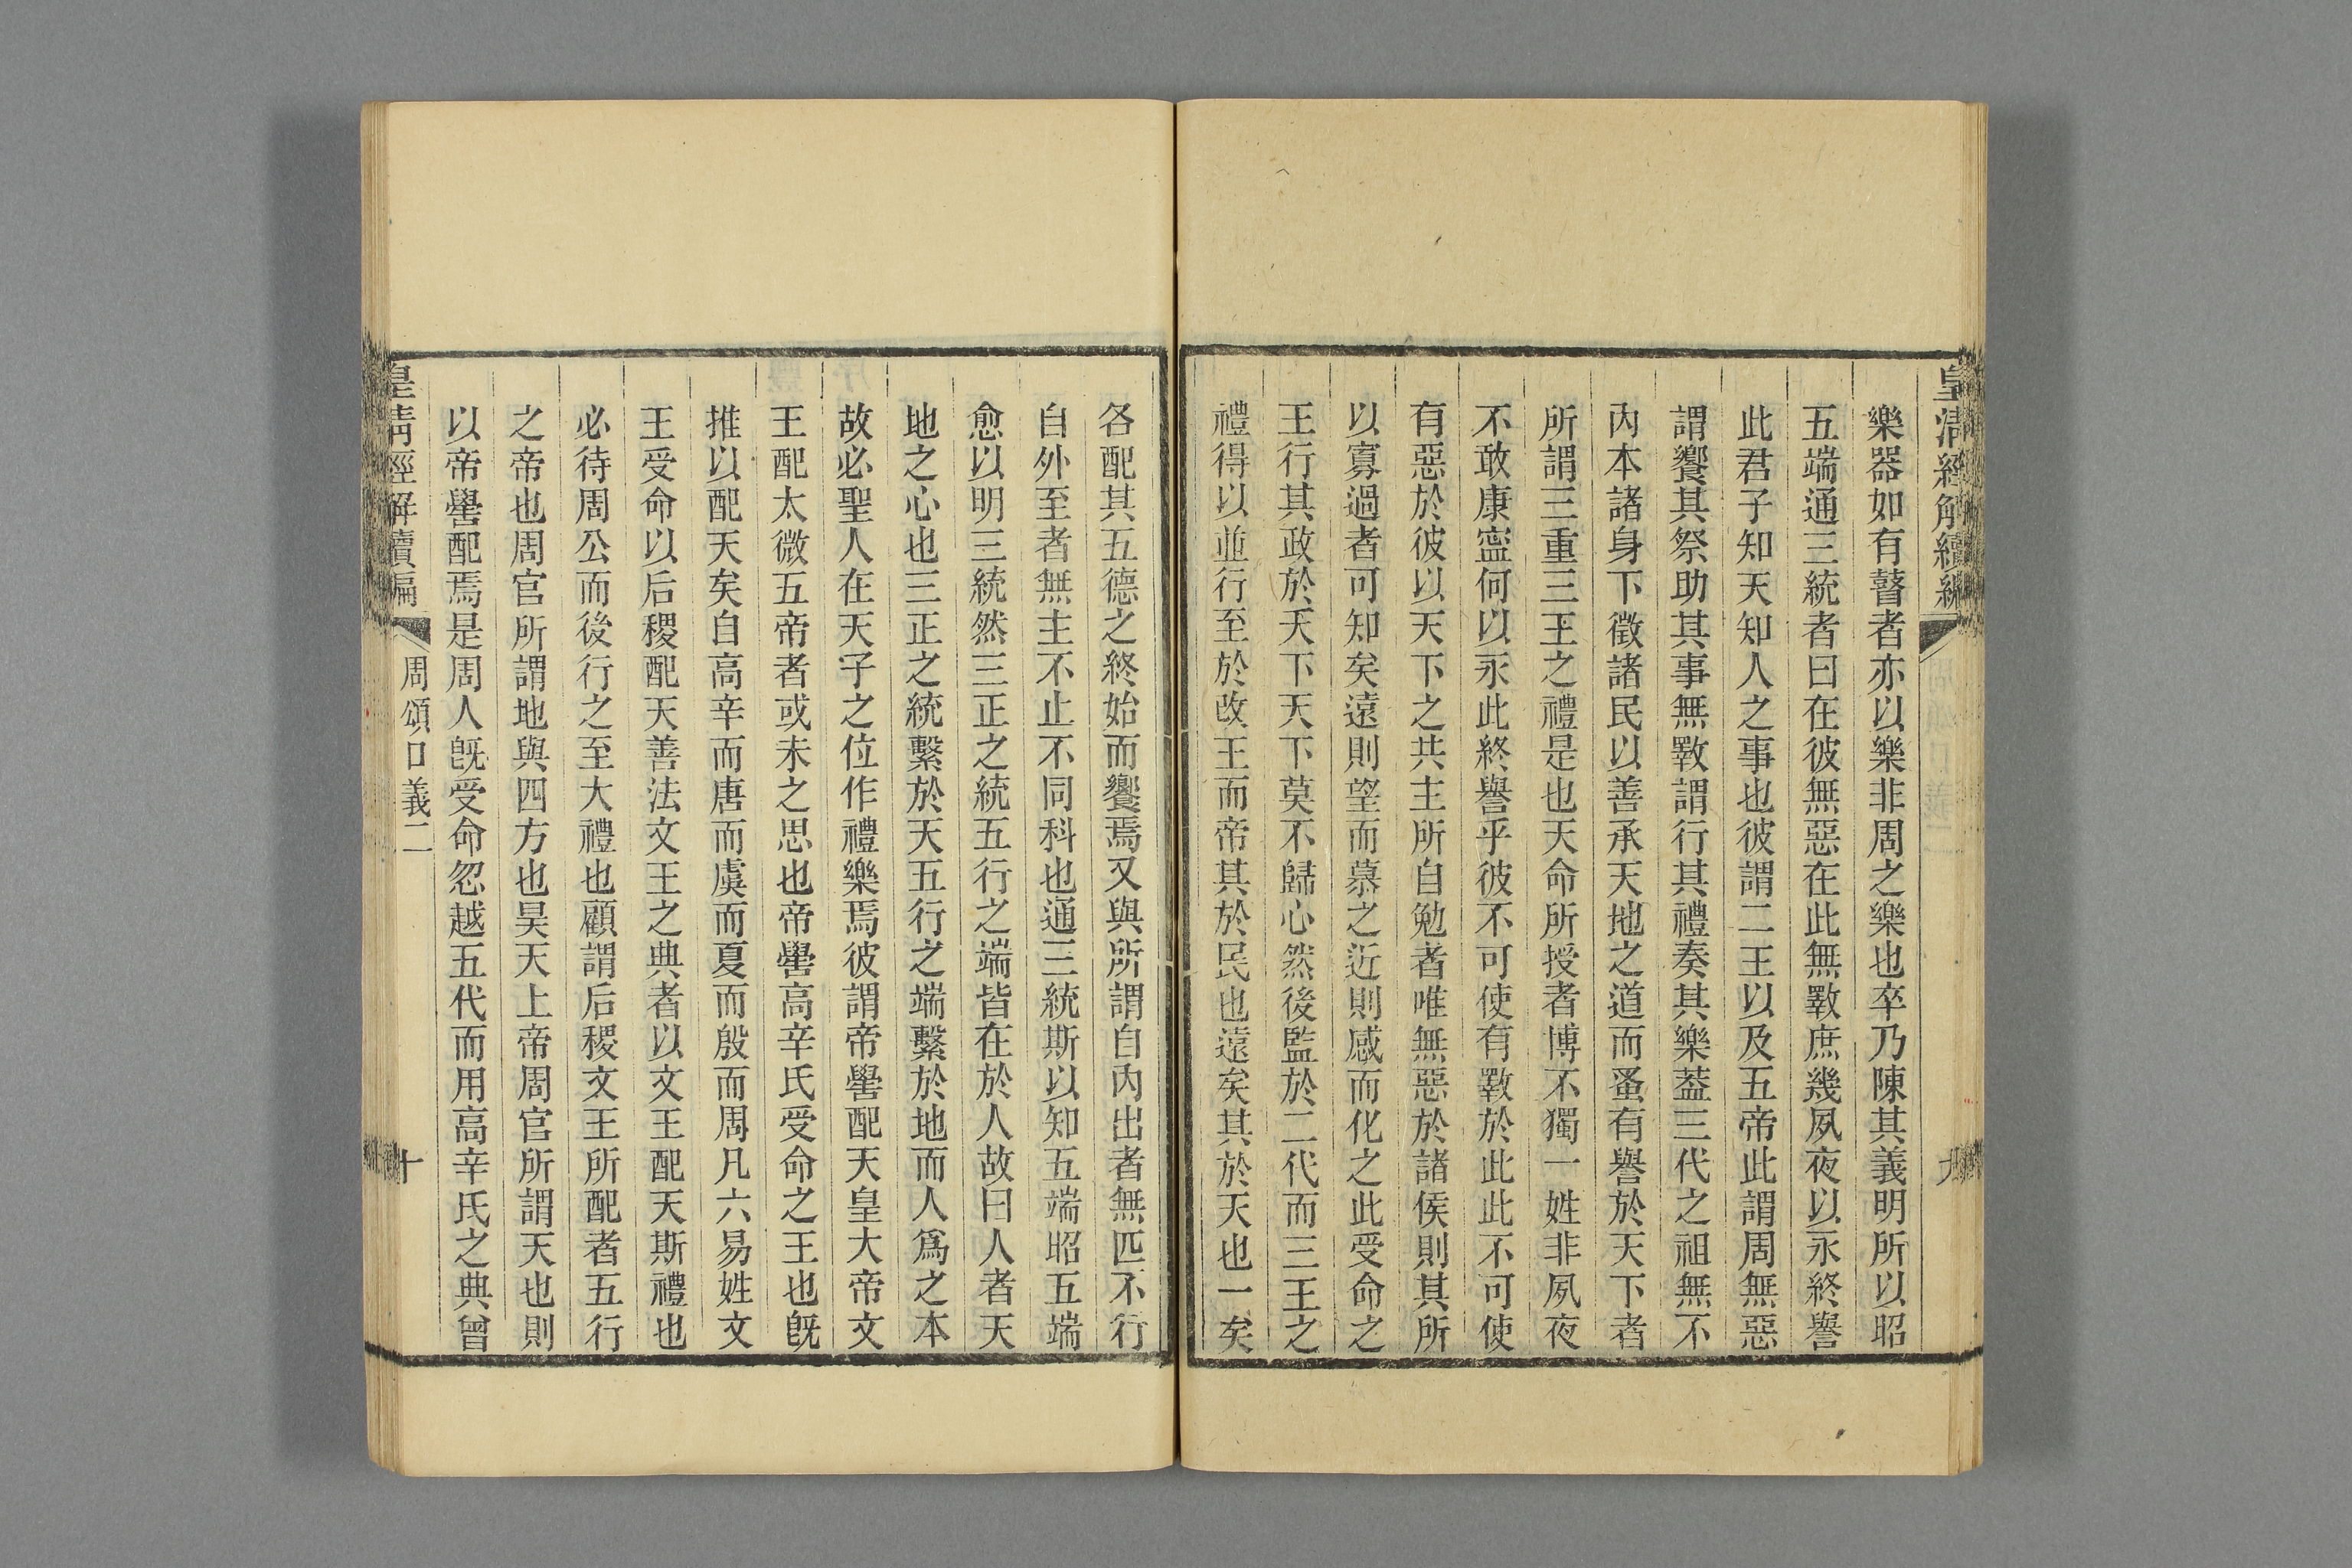 皇清經解續編
九
樂器如有瞽者亦以樂非周之樂也卒乃陳其義明所以昭
五端通三統者曰在彼無惡在此無斁庶幾夙夜以永終譽
此君子知天知人之事也彼謂二王以及五帝此謂周無惡
謂饗其祭助其事無斁謂行其禮奏其樂葢三代之祖無不
內本諸身下徵諸民以善承天地之道而蚤有譽於天下者
所謂三重三王之禮是也天命所授者博不獨一姓非夙夜
不敢康寍何以永此終譽乎彼不可使有斁於此此不可使
有惡於彼以天下之共主所自勉者唯無惡於諸侯則其所
以寡過者可知矣遠則望而慕之近則感而化之此受命之
王行其政於天下天下莫不歸心然後監於二代而三王之
禮得以並行至於改王而帝其於民也遠矣其於天也一矣
各配其五德之終始而饗焉又與所謂自內出者無匹不行
自外至者無主不止不同科也通三統斯以知五端昭五端
愈以明三統然三正之統五行之端皆在於人故曰人者天
地之心也三正之統繫於天五行之端繫於地而人爲之本
故必聖人在天子之位作禮樂焉彼謂帝嚳配天皇大帝文
王配太微五帝者或未之思也帝嚳高辛氏受命之王也旣
推以配天矣自高辛而唐而虞而夏而殷而周凡六易姓文
王受命以后稷配天善法文王之典者以文王配天斯禮也
必待周公而後行之至大禮也顧謂后稷文王所配者五行
之帝也周官所謂地與四方也昊天上帝周官所謂天也則
以帝嚳配焉是周人旣受命忽越五代而用高辛氏之典曾
皇清經解續編
周頌口義二
十